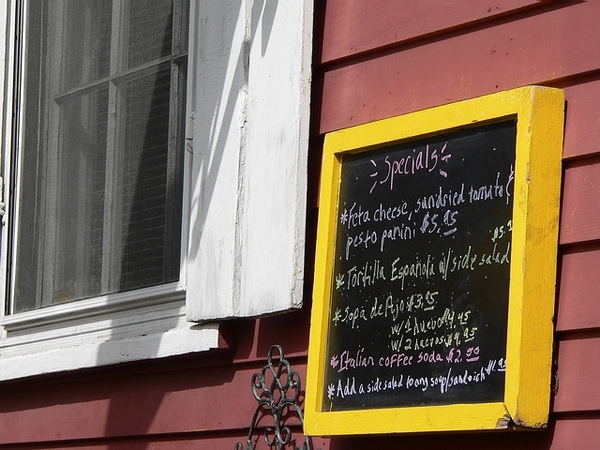 Specials
*Feta cheese, sandried tomato &
pesto panini $5.95
*Tortilla Española w/side salad
*Sopa de Ajo $3.95
w/1 huevo $4.45
w/2 huevos $4.95
*Italian coffee soda $2.50
*Add a side salad to any soup/sandwich $1.95